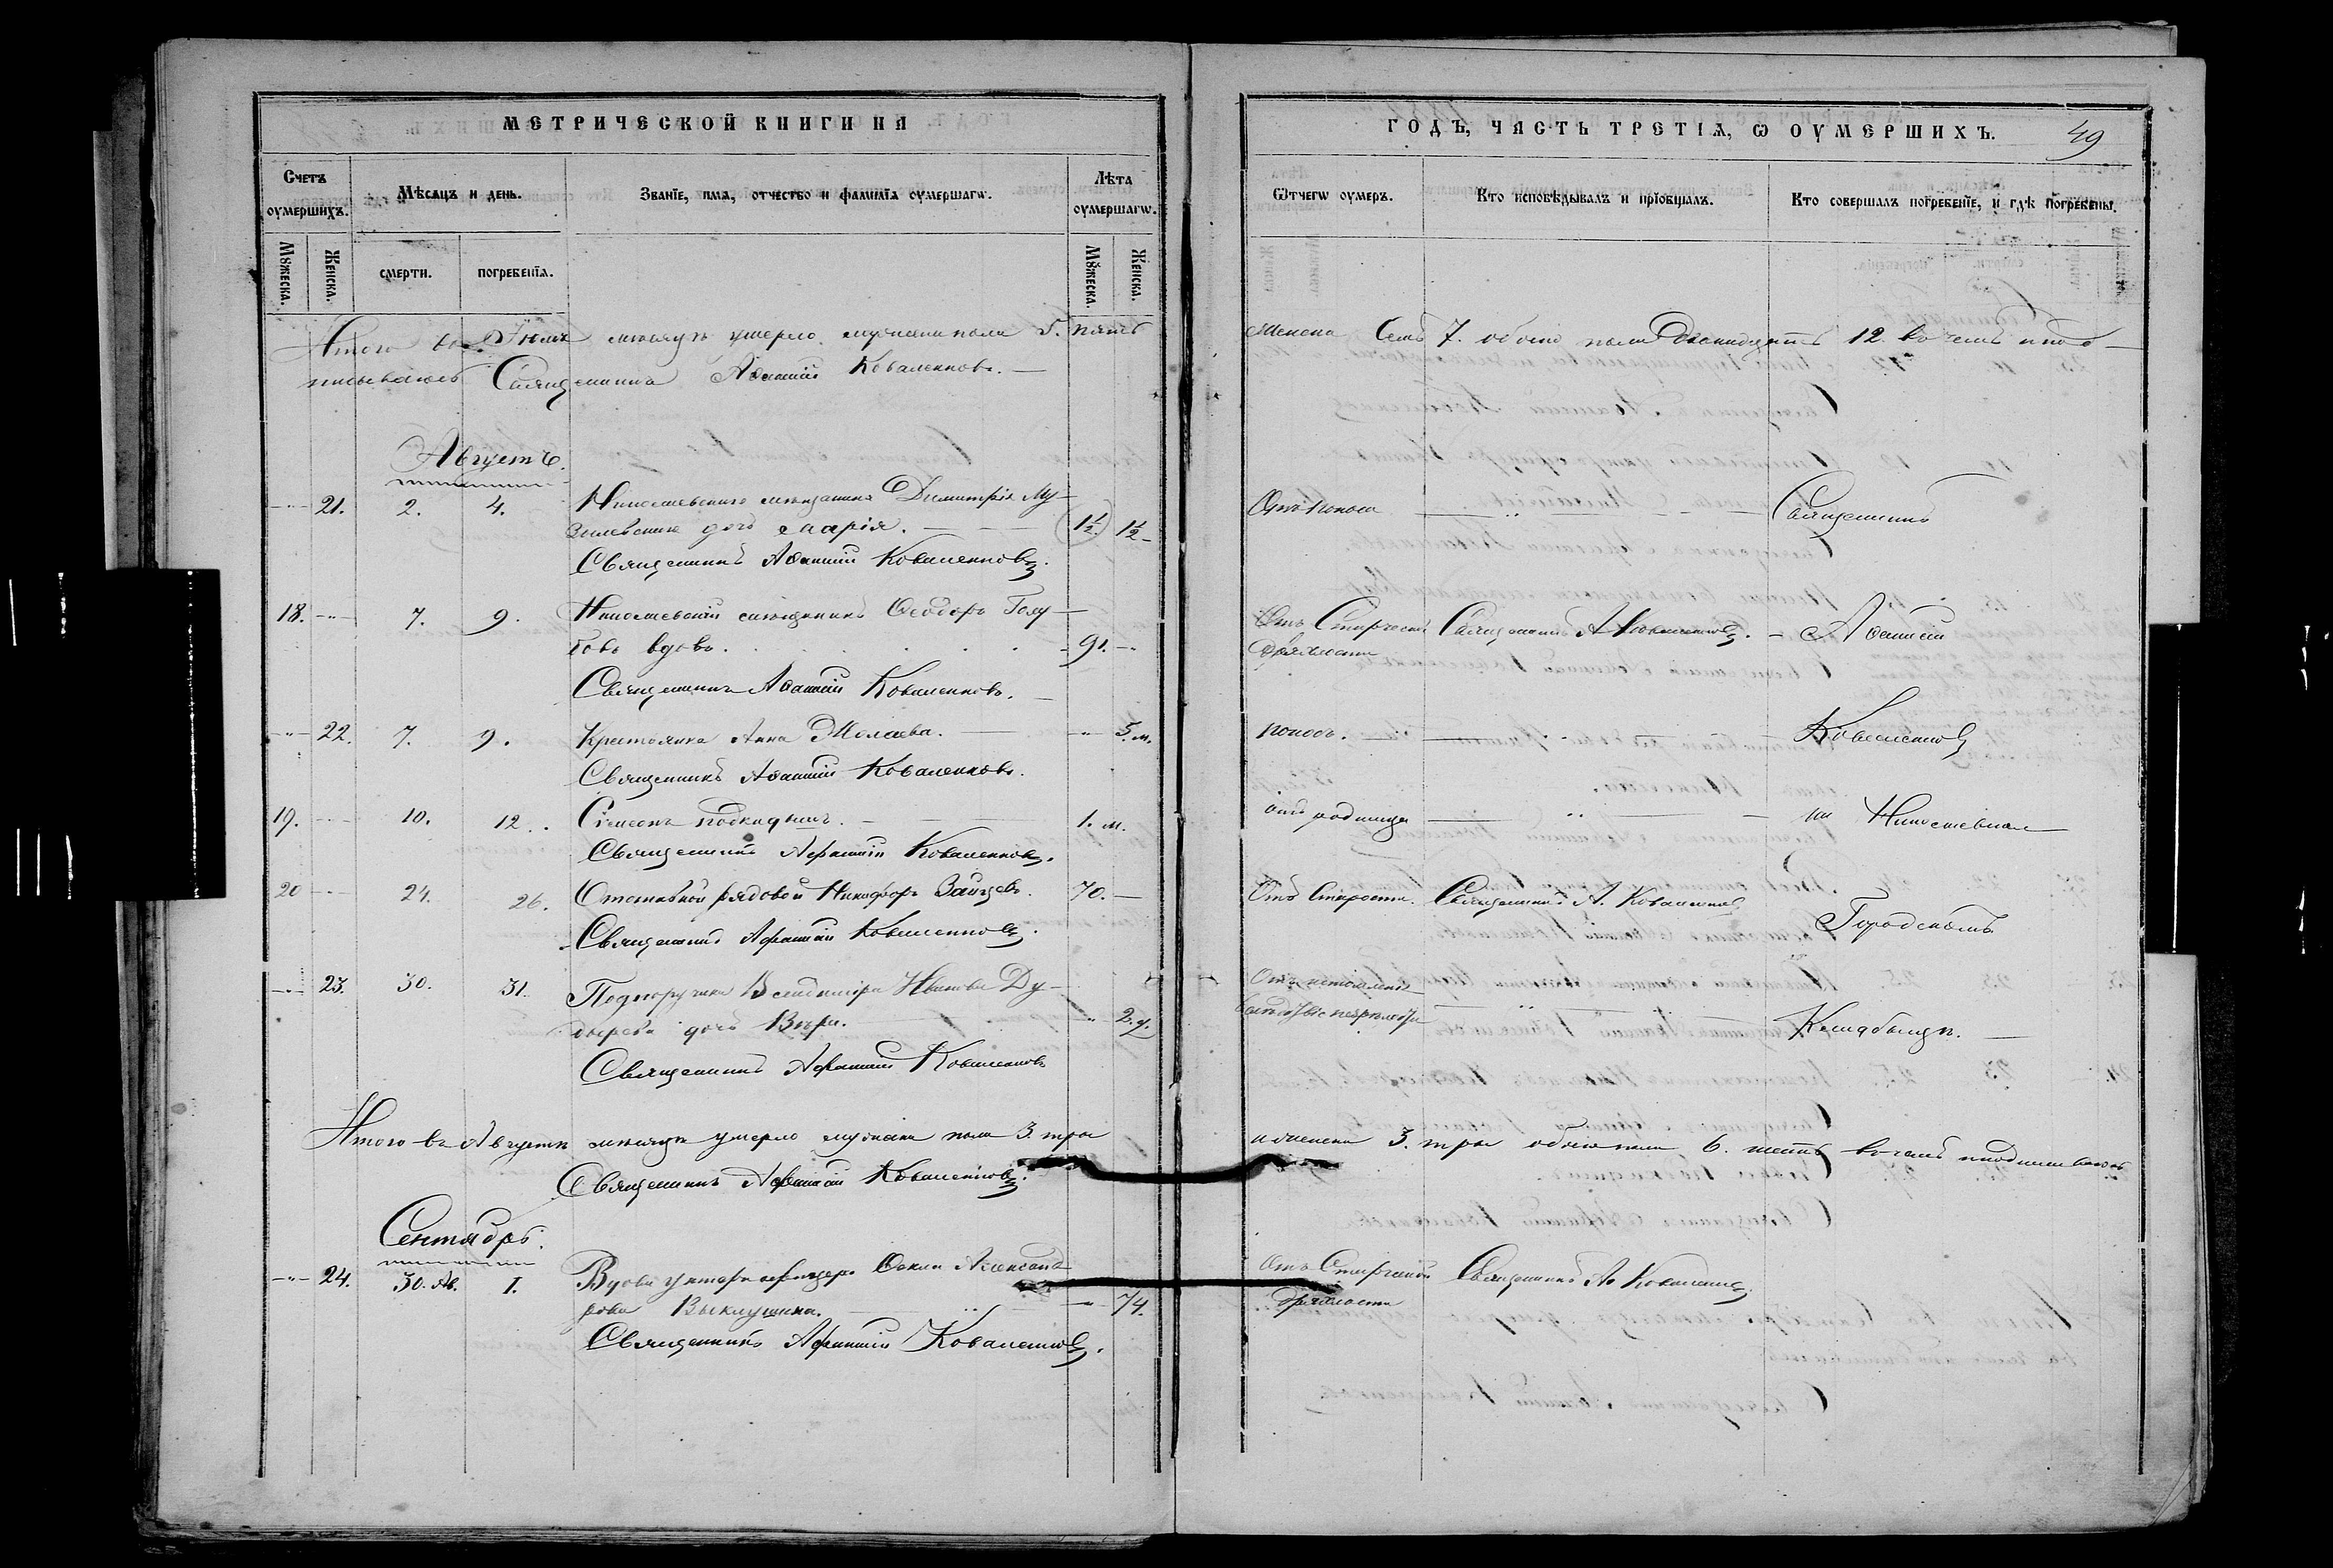 МЕТРИЧЕСКОЙ КНИГИ НА
Счетъ оумершихъ.
Мѣсяцъ и день.
Званїе, имя, отчество и фамилїа оумершагѡ.
Лѣта оумершагѡ.
Мꙋжеска.
Женска.
смерти.
погребенїа.
Мꙋжеска.
Женска.
Итого въ Іюлѣ мѣсяцѣ умерло мужеска пола 5. пять
писываюсь Священникъ Аѳанасій Коваленковъ.
Августъ.
21. 2. 4. Николаевскаго мѣщанина Димитрія
дочь Марія. 1½ 1½
Священникъ Аѳанасій Коваленковъ.
18. 7. 9. Николаевскій мѣщанинъ Ѳеодоръ Голу-
бовъ вдовъ. 91.
Священникъ Аѳанасій Коваленковъ.
22. 7. 9. Крестьянка Анна 5. м.
Священникъ Аѳанасій Коваленковъ.
19. 10. 12. Симеонъ подкидышъ. 1. м.
Священникъ Афанасій Коваленковъ.
20 24. 26. Отставной рядовой Никифоръ Зайцевъ. 70.
Священникъ Афанасій Коваленковъ.
23. 30. 31. Подпоручика Владиміра Иванова Ду-
дочь Вѣра. 2. д.
Священникъ Афанасій Коваленковъ
Итого въ Августѣ мѣсяцѣ умерло мужеска пола 3. три
Священникъ Афанасій Коваленковъ.
Сентябрь.
24. 30. Ав. 1. Вдова унтеръ офицера Александ-
рова 74.
Священникъ Афанасій Коваленковъ.
ГОДЪ, ЧАСТЬ ТРЕТІА, Ѡ ОУМЕРШИХЪ.
49
Ѿчегѡ оумеръ.
Кто исповѣдывалъ и прїобщалъ.
Кто совершалъ погребенїе, и гдѣ погребены.
женска Семь 7. обоего пола Двенадцать 12. въ чемъ и подо-
Отъ поноса Священникъ
Отъ Старческой Священникъ А Коваленковъ. Аѳанасій
дряхлости
поносъ. Коваленковъ
отъ родимца на Николаевскомъ
Отъ Старости. Священникъ А. Коваленковъ
Городскомъ
Кладбищѣ.
и женска 3. три обоего пола 6. шесть въ чемъ и подписываюсь
Отъ Старческой Священникъ Аѳ Коваленковъ
дряхлости